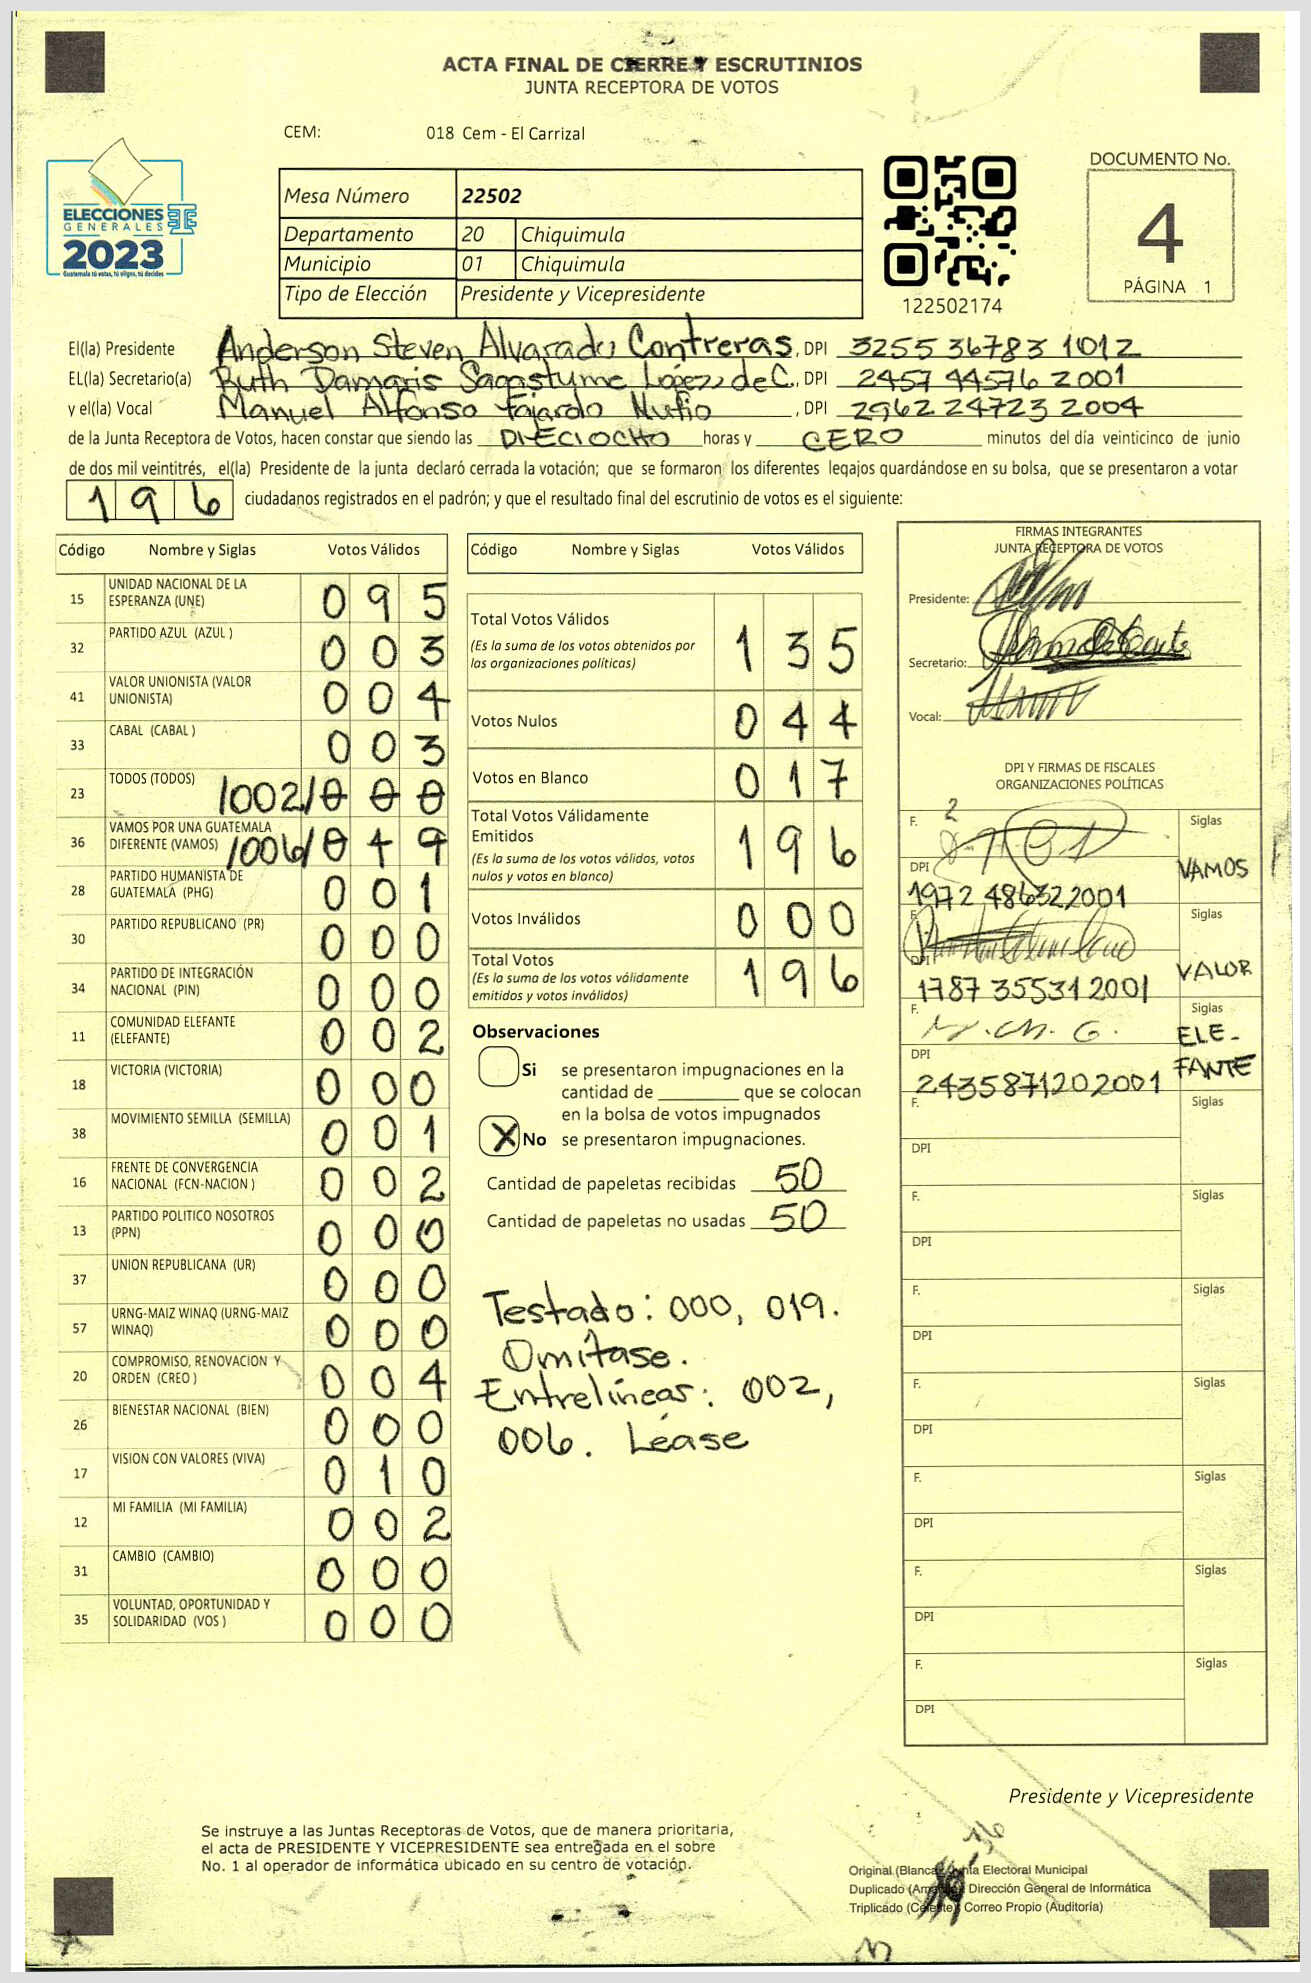 ACTA FINAL DE CIERRE Y ESCRUTINIOS
JUNTA RECEPTORA DE VOTOS
CEM: 018 Cem - El Carrizal
ELECCIONES
GENERALES
2023
Guatemala tú votas, tú eliges, tú decides
Mesa Número 22502
Departamento 20 Chiquimula
Municipio 01 Chiquimula
Tipo de Elección Presidente y Vicepresidente
122502174
DOCUMENTO No.
4
PÁGINA 1
El(la) Presidente Anderson Steven Alvarado Contreras, DPI 3255 36783 1012
EL(la) Secretario(a) Ruth Damaris Sagastume López de C., DPI 2457 44576 2001
y el(la) Vocal Manuel Alfonso Fajardo Nufio, DPI 2962 24723 2004
de la Junta Receptora de Votos, hacen constar que siendo las DIECIOCHO horas y CERO minutos del día veinticinco de junio
de dos mil veintitrés, el(la) Presidente de la junta declaró cerrada la votación; que se formaron los diferentes legajos guardándose en su bolsa, que se presentaron a votar
196 ciudadanos registrados en el padrón; y que el resultado final del escrutinio de votos es el siguiente:
Código Nombre y Siglas Votos Válidos
15 UNIDAD NACIONAL DE LA ESPERANZA (UNE) 095
32 PARTIDO AZUL (AZUL ) 003
41 VALOR UNIONISTA (VALOR UNIONISTA) 004
33 CABAL (CABAL ) 003
23 TODOS (TODOS) /002/ 000
36 VAMOS POR UNA GUATEMALA DIFERENTE (VAMOS) /006/ 019
28 PARTIDO HUMANISTA DE GUATEMALA (PHG) 001
30 PARTIDO REPUBLICANO (PR) 000
34 PARTIDO DE INTEGRACIÓN NACIONAL (PIN) 000
11 COMUNIDAD ELEFANTE (ELEFANTE) 002
18 VICTORIA (VICTORIA) 000
38 MOVIMIENTO SEMILLA (SEMILLA) 001
16 FRENTE DE CONVERGENCIA NACIONAL (FCN-NACION ) 002
13 PARTIDO POLITICO NOSOTROS (PPN) 000
37 UNION REPUBLICANA (UR) 000
57 URNG-MAIZ WINAQ (URNG-MAIZ WINAQ) 000
20 COMPROMISO, RENOVACION Y ORDEN (CREO ) 004
26 BIENESTAR NACIONAL (BIEN) 000
17 VISION CON VALORES (VIVA) 010
12 MI FAMILIA (MI FAMILIA) 002
31 CAMBIO (CAMBIO) 000
35 VOLUNTAD, OPORTUNIDAD Y SOLIDARIDAD (VOS ) 000
Código Nombre y Siglas Votos Válidos
Total Votos Válidos 135
(Es la suma de los votos obtenidos por
las organizaciones políticas)
Votos Nulos 044
Votos en Blanco 017
Total Votos Válidamente
Emitidos 196
(Es la suma de los votos válidos, votos
nulos y votos en blanco)
Votos Inválidos 000
Total Votos 196
(Es la suma de los votos válidamente
emitidos y votos inválidos)
Observaciones
Si se presentaron impugnaciones en la
cantidad de ________ que se colocan
en la bolsa de votos impugnados
X No se presentaron impugnaciones.
Cantidad de papeletas recibidas 50
Cantidad de papeletas no usadas 50
Testado: 000, 019.
Omítase.
Entrelíneas: 002,
006. Léase
FIRMAS INTEGRANTES
JUNTA RECEPTORA DE VOTOS
Presidente:
Secretario:
Vocal:
DPI Y FIRMAS DE FISCALES
ORGANIZACIONES POLÍTICAS
F. Siglas
DPI 1972 48632 2001 VAMOS
F. Siglas
DPI 1787 35531 2001 VALOR
F. M. CM. G. Siglas
DPI 2435871202001 ELE-
FANTE
F. Siglas
DPI
F. Siglas
DPI
F. Siglas
DPI
F. Siglas
DPI
F. Siglas
DPI
F. Siglas
DPI
F. Siglas
DPI
Presidente y Vicepresidente
Se instruye a las Juntas Receptoras de Votos, que de manera prioritaria,
el acta de PRESIDENTE Y VICEPRESIDENTE sea entregada en el sobre
No. 1 al operador de informática ubicado en su centro de votación.
Original (Blanca) Junta Electoral Municipal
Duplicado (Amarillo) Dirección General de Informática
Triplicado (Celeste) Correo Propio (Auditoría)